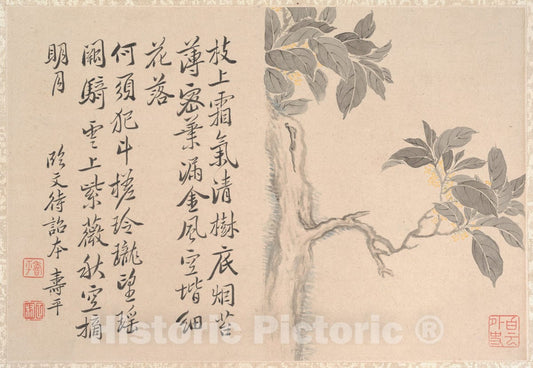 枝上霜氣清樹底烟苔
薄密葉漏金風空堦細
花落
何須犯斗槎玲瓏望瑤
闕騎雲上紫薇秋空摘
明月
臨文待詔本 壽平
白雲外史
Historic Pictoric®